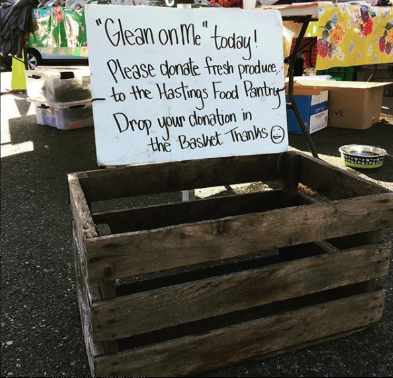 "Glean on Me" today!
Please donate fresh produce
to the Hastings Food Pantry
Drop your donation in
the Basket Thanks ☺
VE